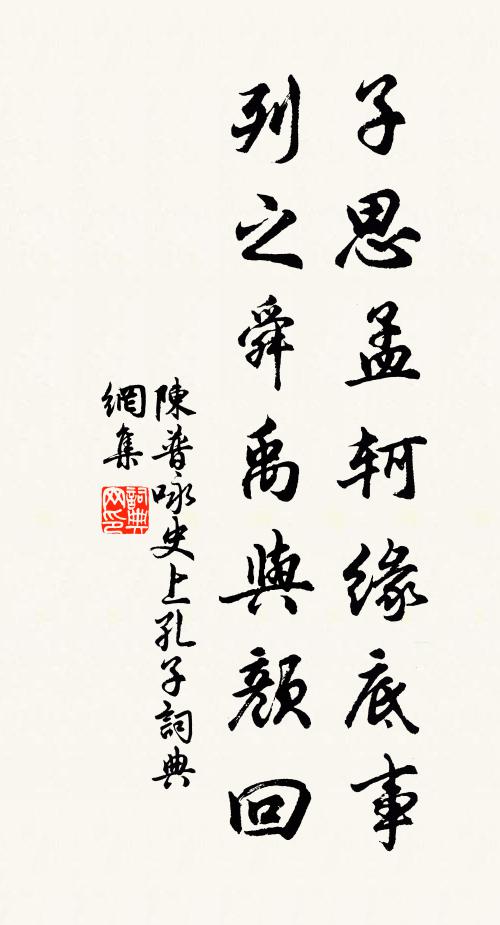 子思孟軻緣底事
列之舜禹與顏回
陳普咏史上孔子詞典
網集
詞典
网印